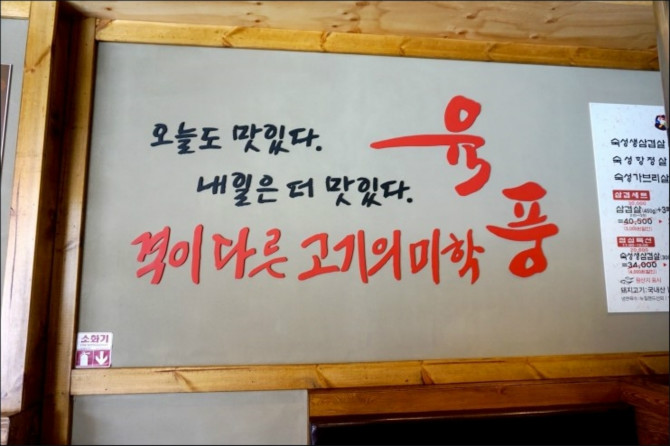 오늘도 맛있다.
내일은 더 맛있다.
격이 다른 고기의 미학
육풍
숙성생삼겹살
숙성항정살
숙성가브리살
삼겹세트
=40,900
점심특선
숙성생삼겹살
=34,000
원산지 표시
돼지고기:국내산
소화기